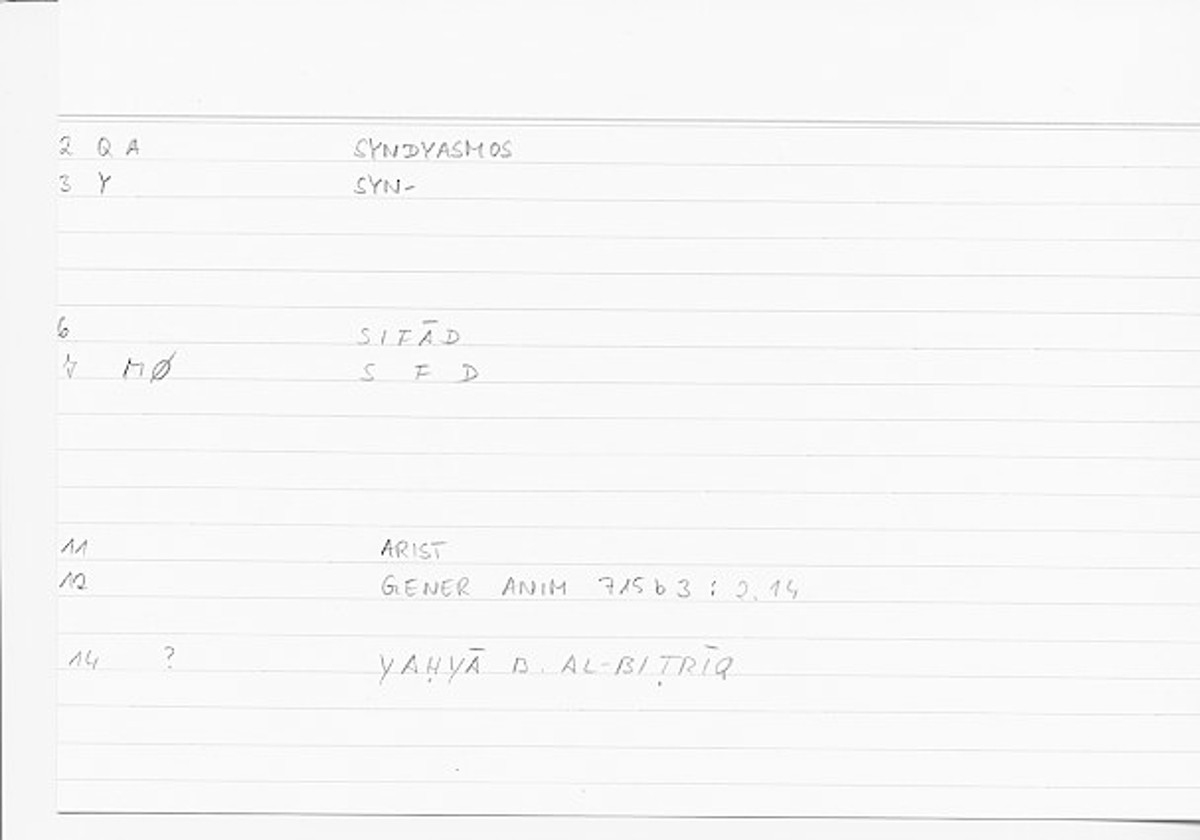 2 Q A SYNDYASMOS
3 Y SYN-
6 SIFĀD
7 MØ S F D
11 ARIST
12 GENER ANIM 715 b 3 : 2.14
14 ? YAḤYĀ B. AL-BIṬRĪQ